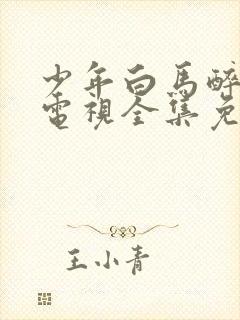 少年白馬醉
電視全集免
王小青